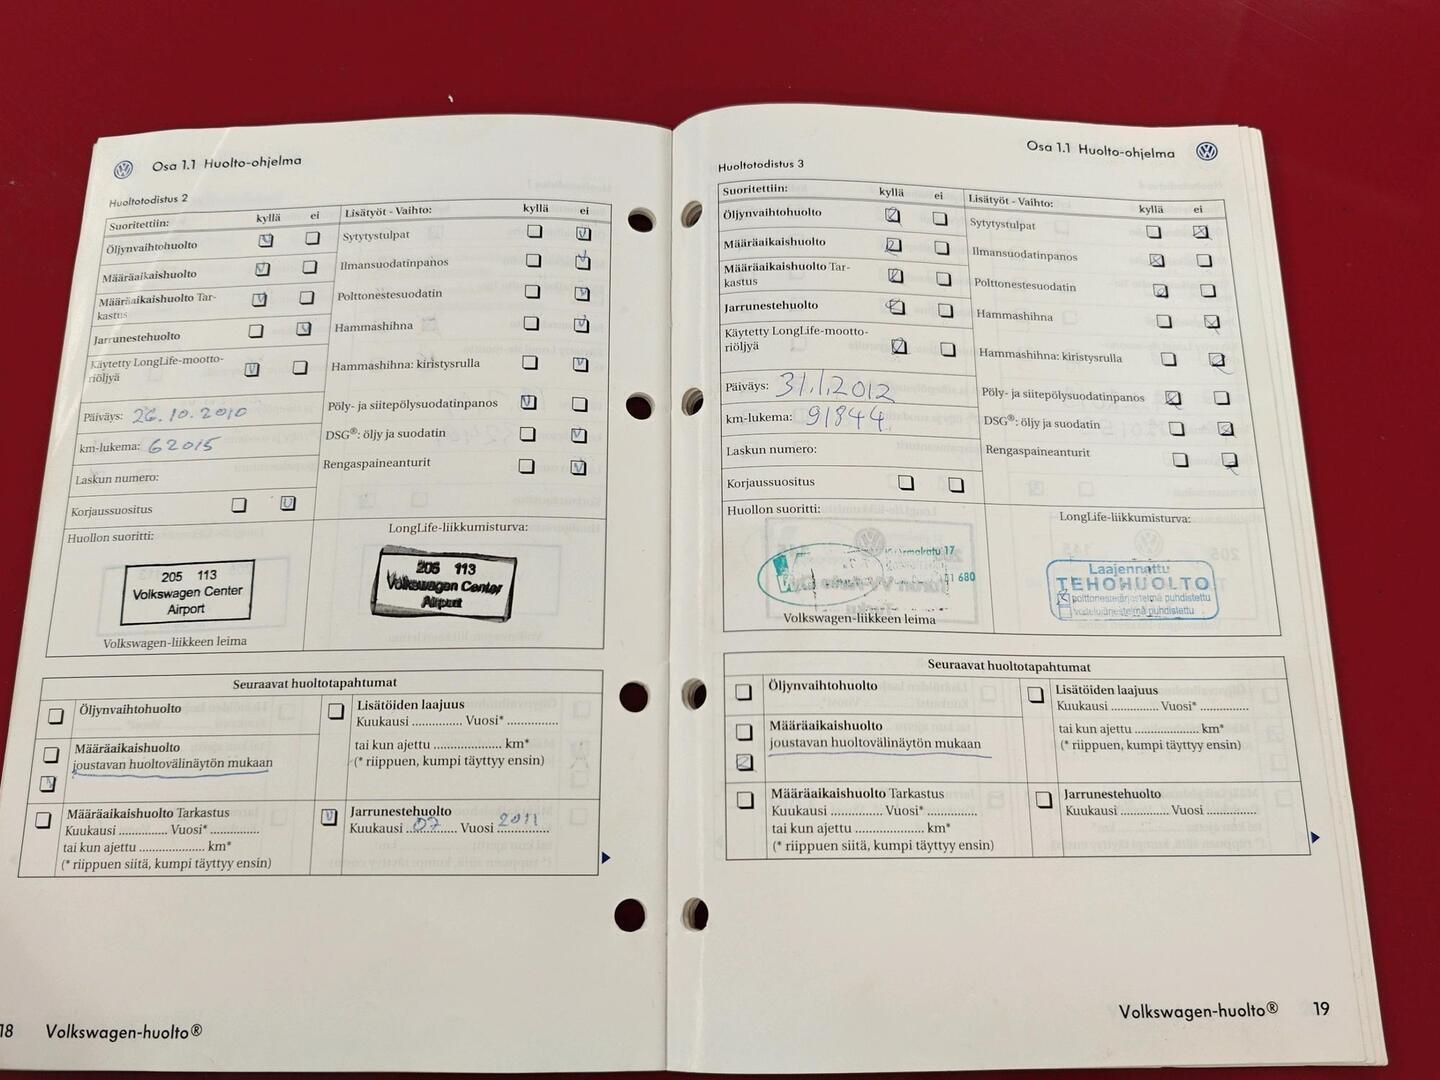 Osa 1.1 Huolto-ohjelma
Huoltotodistus 2
Suoritettiin: kyllä ei
Öljynvaihtohuolto
Määräaikaishuolto
Määräaikaishuolto Tar-
kastus
Jarrunestehuolto
Käytetty LongLife-mootto-
riöljyä
Päiväys: 26.10.2010
km-lukema: 62015
Laskun numero:
Korjaussuositus
Lisätyöt - Vaihto: kyllä ei
Sytytystulpat
Ilmansuodatinpanos
Polttonestesuodatin
Hammashihna
Hammashihna: kiristysrulla
Pöly- ja siitepölysuodatinpanos
DSG®: öljy ja suodatin
Rengaspaineanturit
Huollon suoritti:
205 113
Volkswagen Center
Airport
Volkswagen-liikkeen leima
LongLife-liikkumisturva:
205 113
Volkswagen Center
Airport
Seuraavat huoltotapahtumat
Öljynvaihtohuolto
Määräaikaishuolto
joustavan huoltovälinäytön mukaan
Määräaikaishuolto Tarkastus
Kuukausi ............. Vuosi* .............
tai kun ajettu .................... km*
(* riippuen siitä, kumpi täyttyy ensin)
Lisätöiden laajuus
Kuukausi ............. Vuosi* .............
tai kun ajettu .................... km*
(* riippuen, kumpi täyttyy ensin)
Jarrunestehuolto
Kuukausi ..07.. Vuosi 2011
18 Volkswagen-huolto®
Osa 1.1 Huolto-ohjelma
Huoltotodistus 3
Suoritettiin: kyllä ei
Öljynvaihtohuolto
Määräaikaishuolto
Määräaikaishuolto Tar-
kastus
Jarrunestehuolto
Käytetty LongLife-mootto-
riöljyä
Päiväys: 31.1.2012
km-lukema: 91844
Laskun numero:
Korjaussuositus
Lisätyöt - Vaihto: kyllä ei
Sytytystulpat
Ilmansuodatinpanos
Polttonestesuodatin
Hammashihna
Hammashihna: kiristysrulla
Pöly- ja siitepölysuodatinpanos
DSG®: öljy ja suodatin
Rengaspaineanturit
Huollon suoritti:
17
Volkswagen-liikkeen leima
LongLife-liikkumisturva:
Laajennettu
TEHOHUOLTO
polttonestejärjestelmä puhdistettu
voitelujärjestelmä puhdistettu
Seuraavat huoltotapahtumat
Öljynvaihtohuolto
Määräaikaishuolto
joustavan huoltovälinäytön mukaan
Määräaikaishuolto Tarkastus
Kuukausi ............. Vuosi* .............
tai kun ajettu .................... km*
(* riippuen siitä, kumpi täyttyy ensin)
Lisätöiden laajuus
Kuukausi ............. Vuosi* .............
tai kun ajettu .................... km*
(* riippuen, kumpi täyttyy ensin)
Jarrunestehuolto
Kuukausi ............. Vuosi .............
Volkswagen-huolto® 19